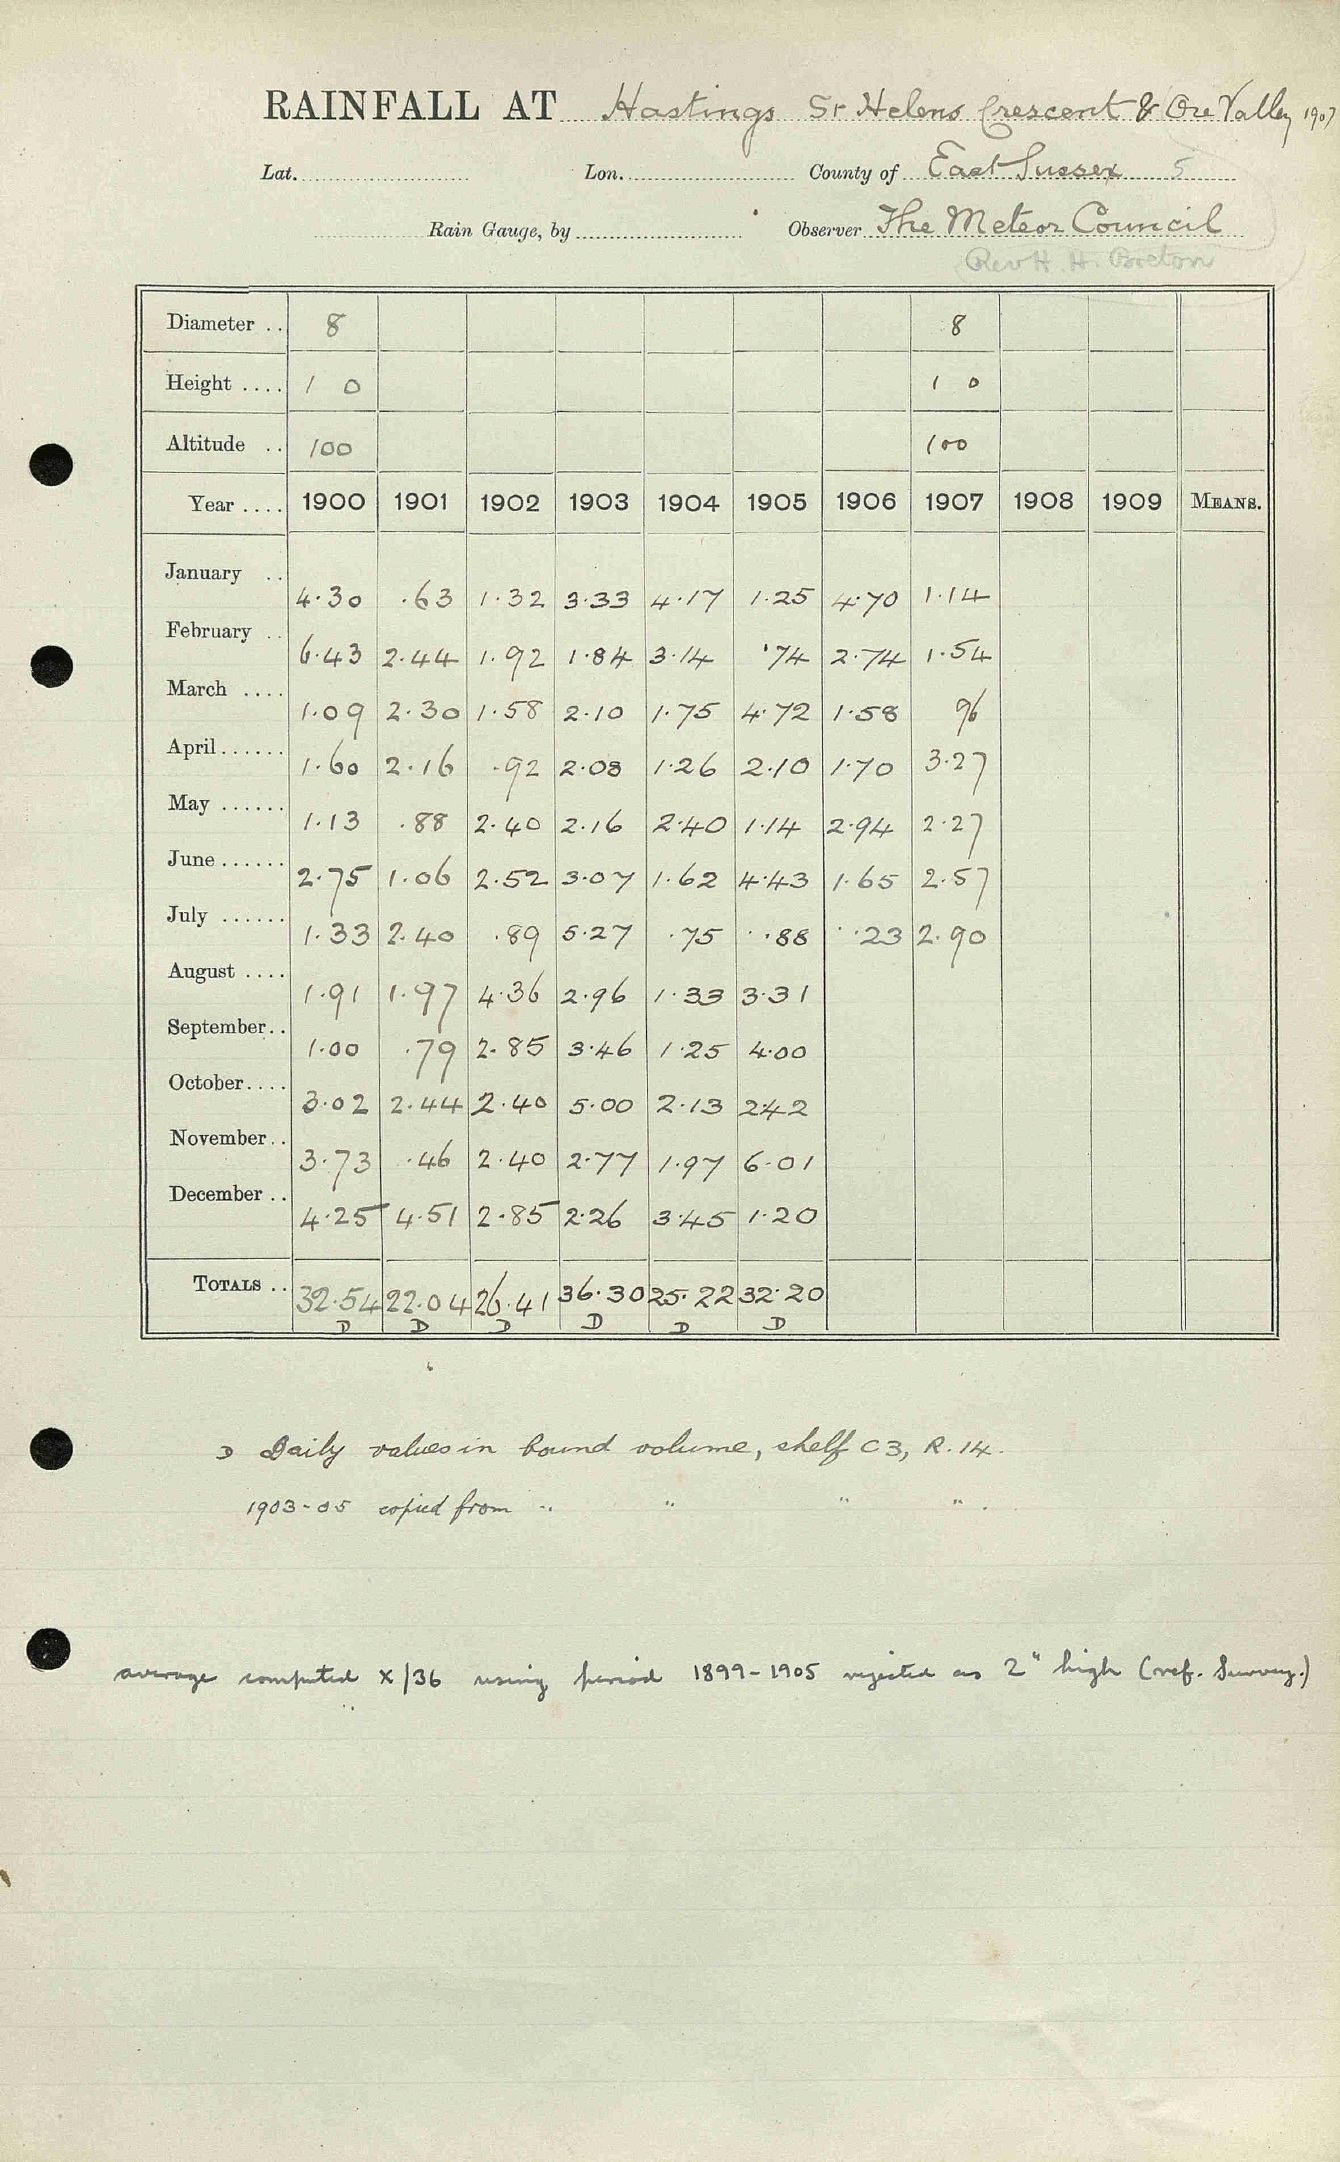 RAINFALL AT Hastings St Helens Crescent & Ore Valley 1907
Lat. Lon. County of East Sussex 5
Rain Gauge, by Observer The Meteor Council
Rev H. H. Breton
Diameter .. 8 8
Height .... 1 0 1 0
Altitude .. 100 100
Year .... 1900 1901 1902 1903 1904 1905 1906 1907 1908 1909 MEANS.
January .. 4.30 .63 1.32 3.33 4.17 1.25 4.70 1.14
February .. 6.43 2.44 1.92 1.84 3.14 .74 2.74 1.54
March .... 1.09 2.30 1.58 2.10 1.75 4.72 1.58 96
April ...... 1.60 2.16 .92 2.08 1.26 2.10 1.70 3.27
May ...... 1.13 .88 2.40 2.16 2.40 1.14 2.94 2.27
June ...... 2.75 1.06 2.52 3.07 1.62 4.43 1.65 2.57
July ...... 1.33 2.40 .89 5.27 .75 .88 .23 2.90
August .... 1.91 1.97 4.36 2.96 1.33 3.31
September.. 1.00 .79 2.85 3.46 1.25 4.00
October.... 3.02 2.44 2.40 5.00 2.13 2.42
November.. 3.73 .46 2.40 2.77 1.97 6.01
December .. 4.25 4.51 2.85 2.26 3.45 1.20
TOTALS .. 32.54 22.04 26.41 36.30 25.22 32.20
D D D D D D
D Daily values in bound volume, shelf C3, R.14.
1903-05 copied from " " " " .
average computed x/36 using period 1899-1905 rejected as 2" high (ref. Survey.)